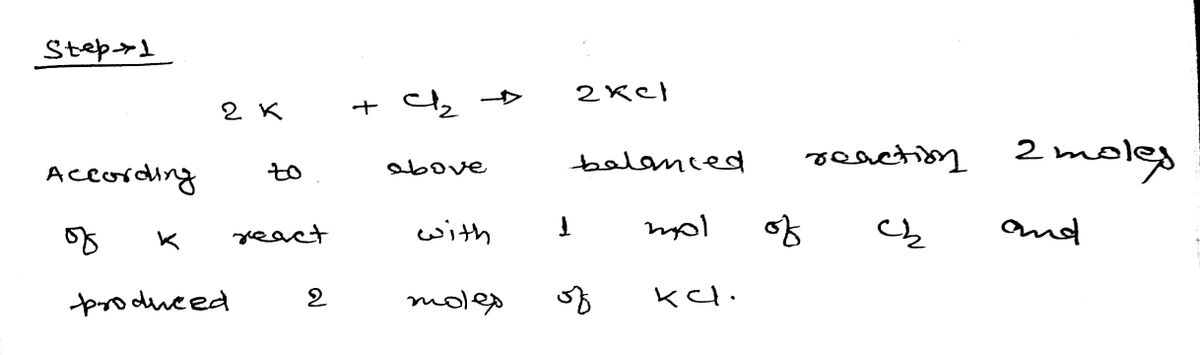 Step→1
2K + Cl₂ → 2KCl
According to above balanced reaction 2 moles
of K react with 1 mol of Cl₂ and
produced 2 moles of KCl.